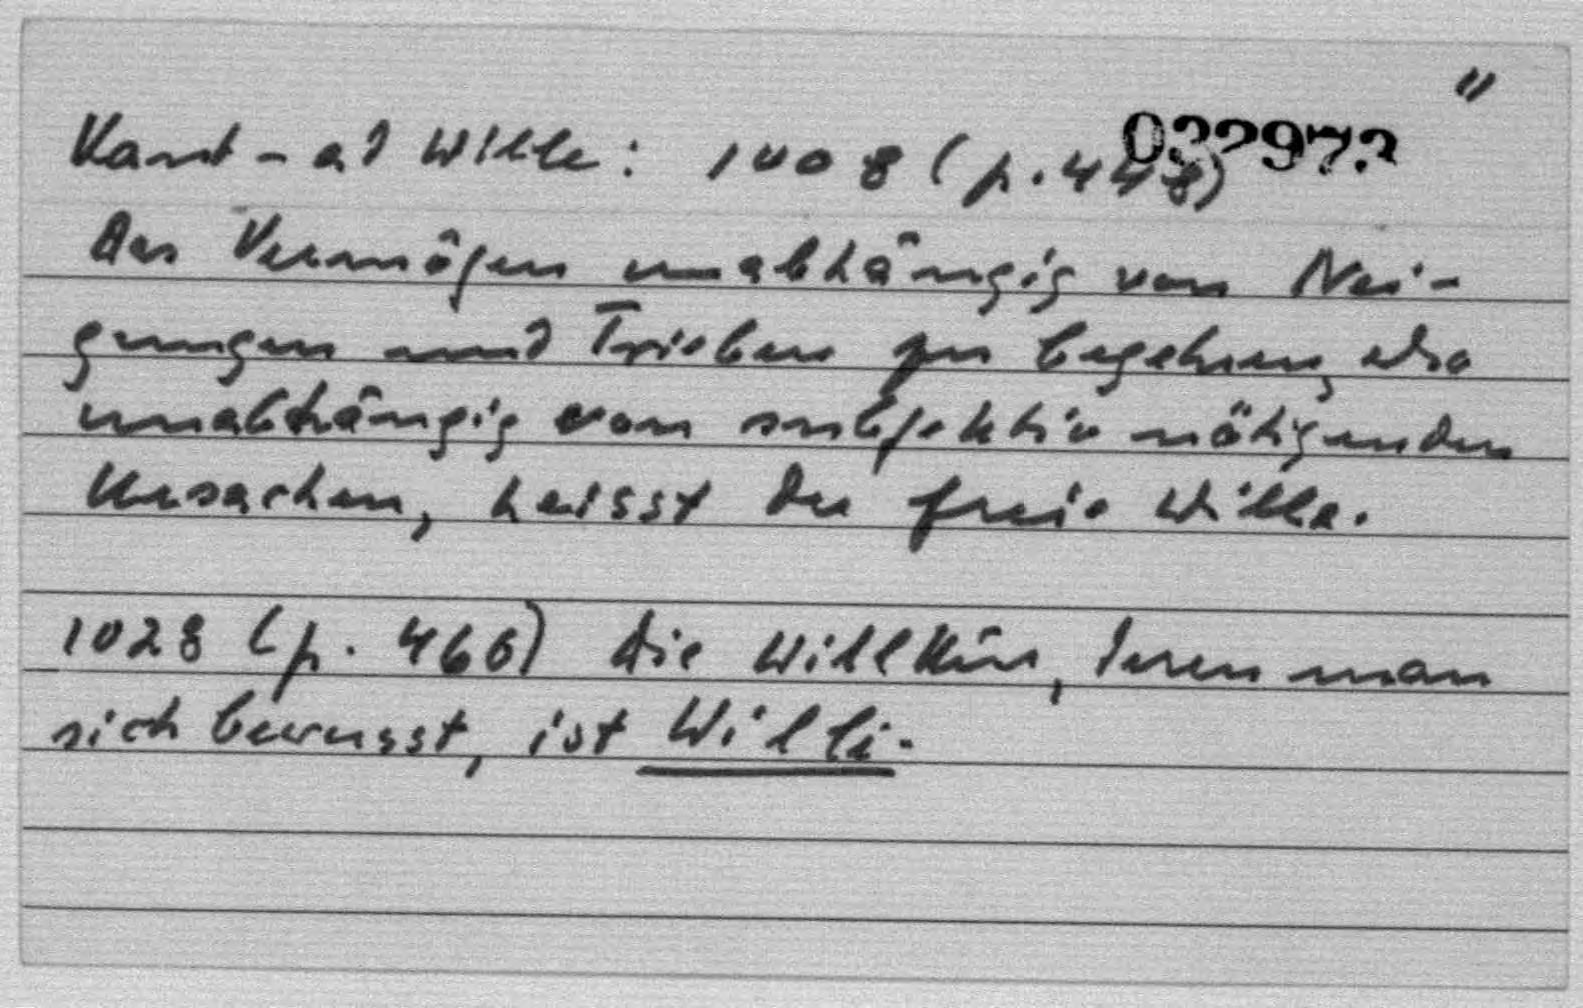 "
032973
Kant - ad Wille: 1008 (p. 448)
Das Vermögen unabhängig von Nei-
gungen und Trieben zu begehren, also
unabhängig von subjektiv nötigenden
Ursachen, heisst der freie Wille.
1028 (p. 466) Die Willkür, deren man
sich bewusst, ist Wille.